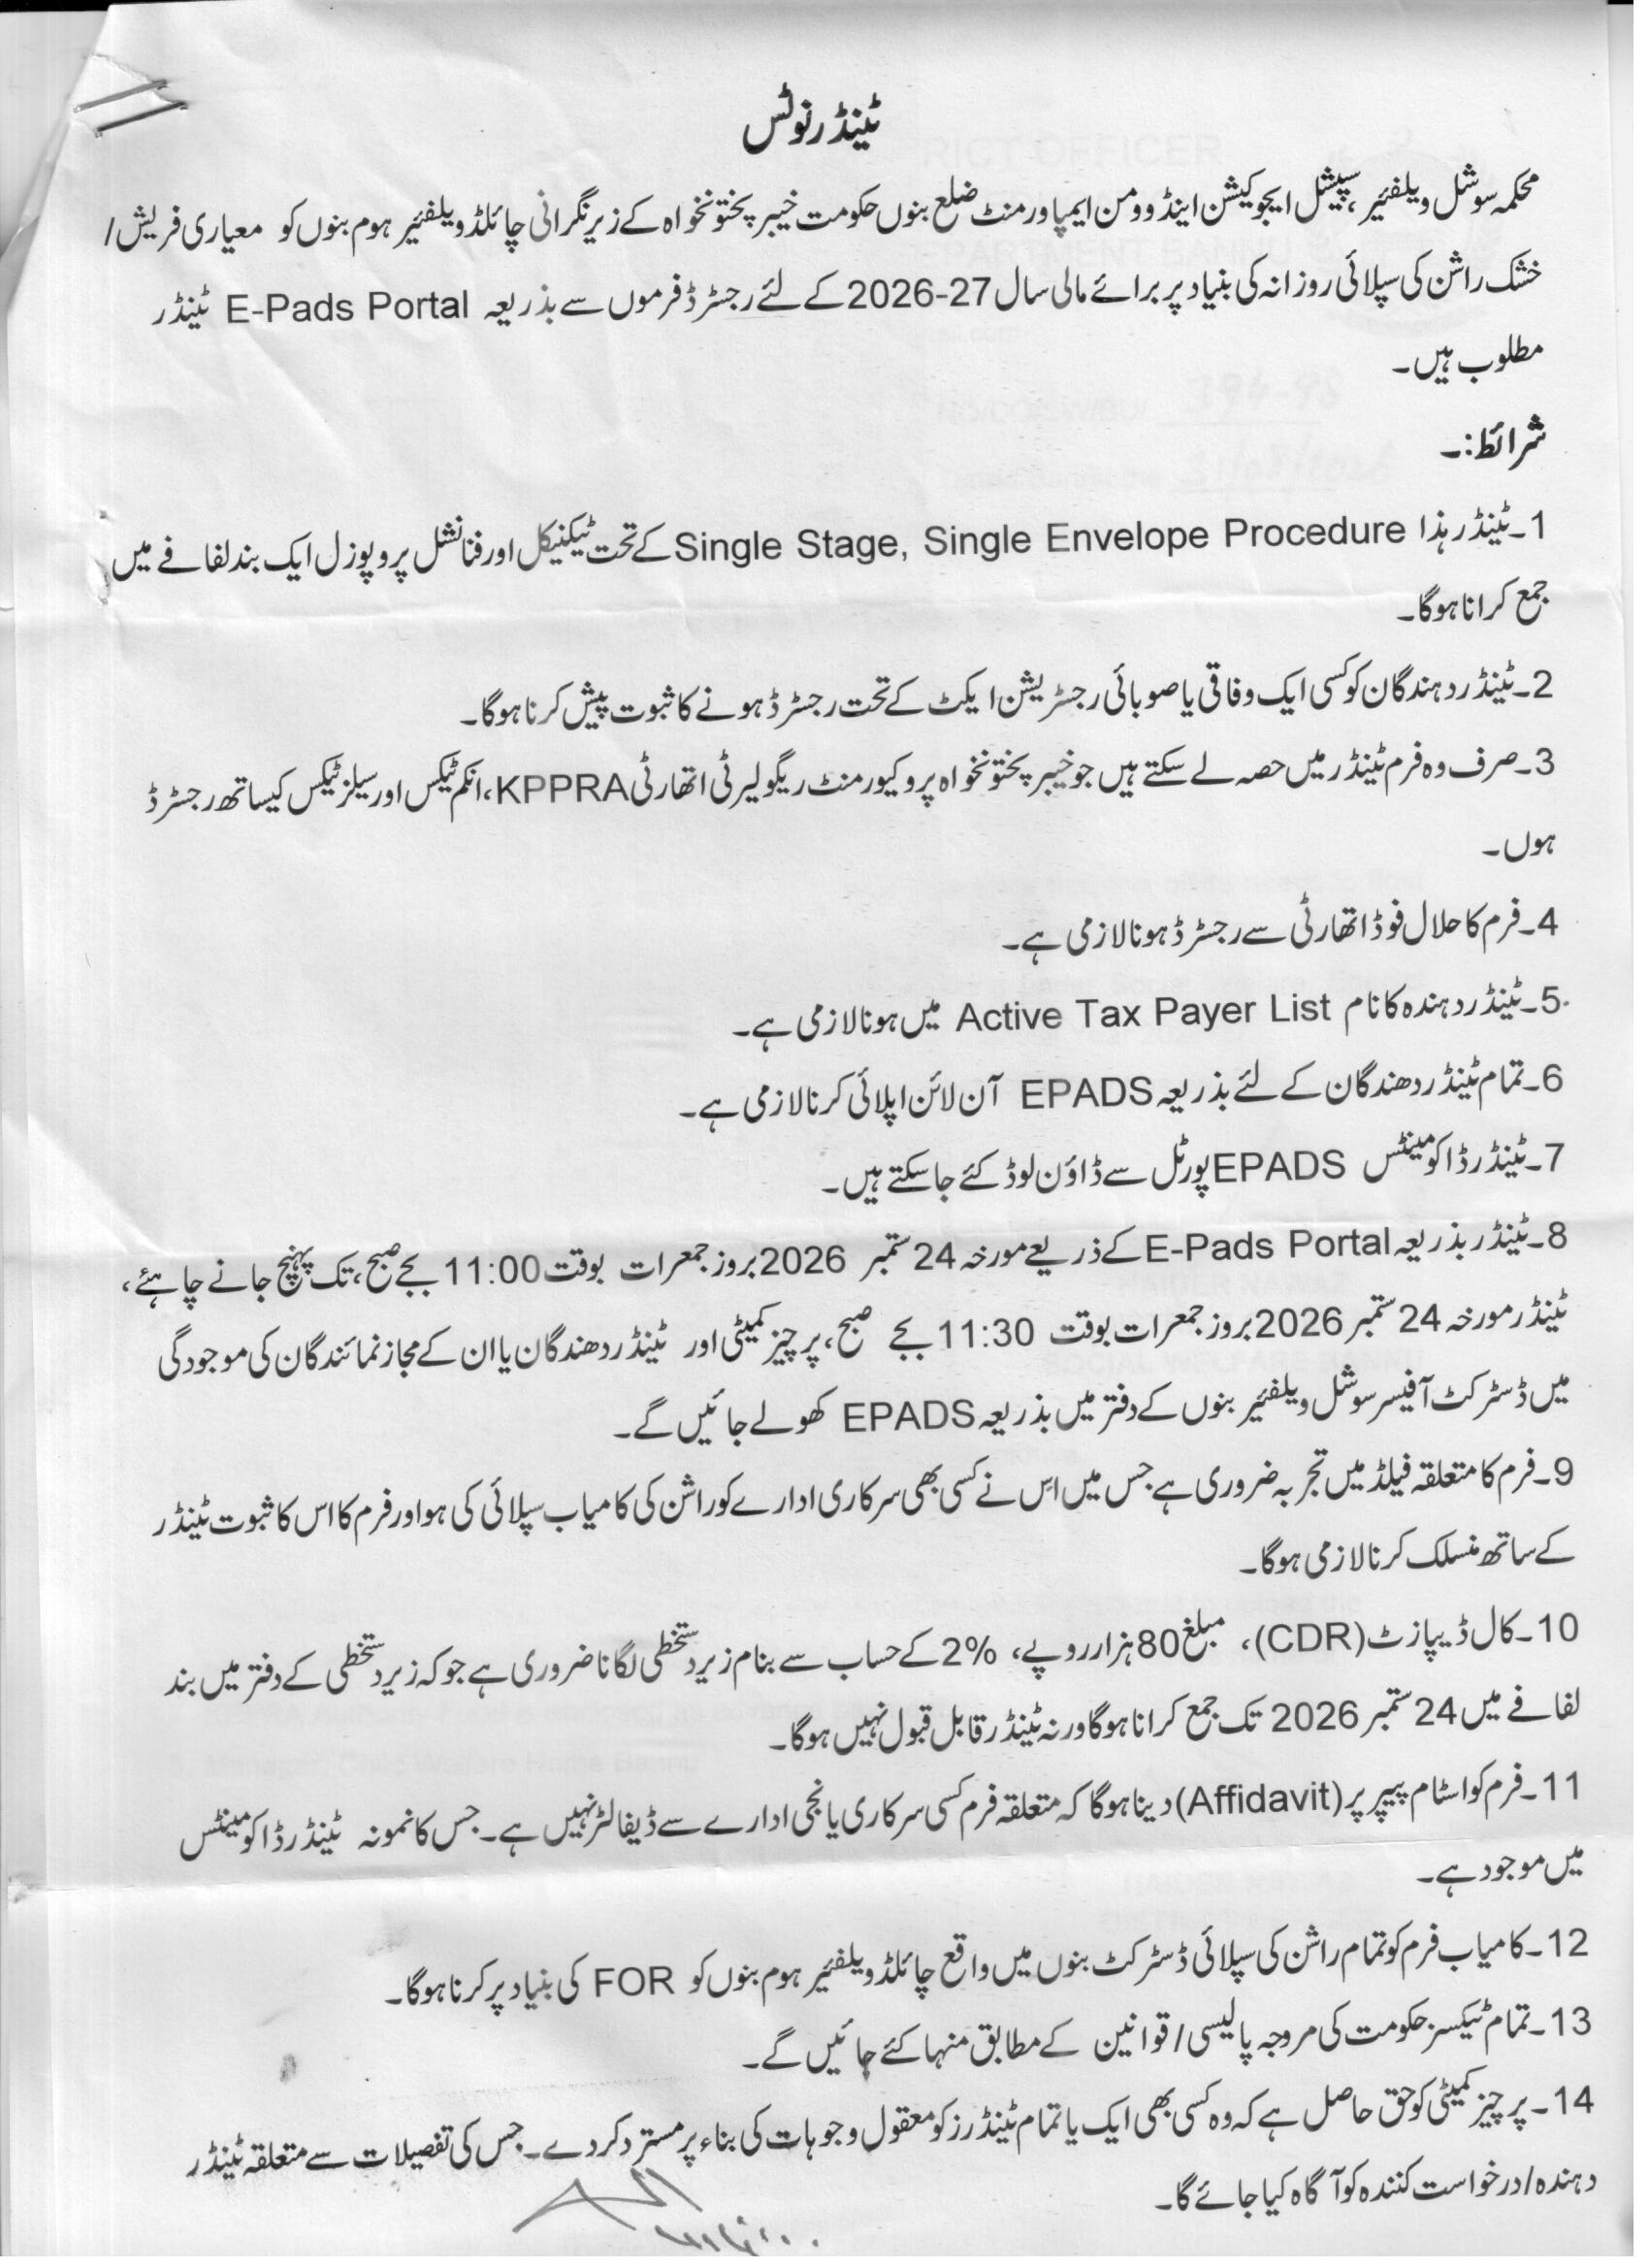 ٹینڈر نوٹس
محکمہ سوشل ویلفئیر، سپیشل ایجوکیشن اینڈ وومن ایمپاورمنٹ ضلع بنوں حکومت خیبر پختونخواہ کے زیر نگرانی چائلڈ ویلفئیر ہوم بنوں کو معیاری فریش/
خشک راشن کی سپلائی روزانہ کی بنیاد پر برائے مالی سال 2026-27 کے لئے رجسٹرڈ فرموں سے بذریعہ E-Pads Portal ٹینڈر
مطلوب ہیں۔
شرائط:۔
1۔ٹینڈر ہذا Single Stage, Single Envelope Procedure کے تحت ٹیکنیکل اور فنانشل پروپوزل ایک بند لفافے میں
جمع کرانا ہوگا۔
2۔ٹینڈر دہندگان کو کسی ایک وفاقی یا صوبائی رجسٹریشن ایکٹ کے تحت رجسٹرڈ ہونے کا ثبوت پیش کرنا ہوگا۔
3۔صرف وہ فرم ٹینڈر میں حصہ لے سکتے ہیں جو خیبر پختونخواہ پروکیورمنٹ ریگولیرٹی اتھارٹی KPPRA، انکم ٹیکس اور سیلز ٹیکس کیساتھ رجسٹرڈ
ہوں۔
4۔فرم کا حلال فوڈ اتھارٹی سے رجسٹرڈ ہونا لازمی ہے۔
5۔ٹینڈر دہندہ کا نام Active Tax Payer List میں ہونا لازمی ہے۔
6۔تمام ٹینڈر دھندگان کے لئے بذریعہ EPADS آن لائن اپلائی کرنا لازمی ہے۔
7۔ٹینڈر ڈاکومینٹس EPADS پورٹل سے ڈاؤن لوڈ کئے جا سکتے ہیں۔
8۔ٹینڈر بذریعہ E-Pads Portal کے ذریعے مورخہ 24 ستمبر 2026 بروز جمعرات بوقت 11:00 بجے صبح، تک پہنچ جانے چاہئے،
ٹینڈر مورخہ 24 ستمبر 2026 بروز جمعرات بوقت 11:30 بجے صبح، پرچیز کمیٹی اور ٹینڈر دھندگان یا ان کے مجاز نمائندگان کی موجودگی
میں ڈسٹرکٹ آفیسر سوشل ویلفئیر بنوں کے دفتر میں بذریعہ EPADS کھولے جائیں گے۔
9۔فرم کا متعلقہ فیلڈ میں تجربہ ضروری ہے جس میں اس نے کسی بھی سرکاری ادارے کو راشن کی کامیاب سپلائی کی ہو اور فرم کا اس کا ثبوت ٹینڈر
کے ساتھ منسلک کرنا لازمی ہوگا۔
10۔کال ڈیپازٹ (CDR)، مبلغ 80 ہزار روپے، 2% کے حساب سے بنام زیر دستخطی لگانا ضروری ہے جو کہ زیر دستخطی کے دفتر میں بند
لفافے میں 24 ستمبر 2026 تک جمع کرانا ہوگا ورنہ ٹینڈر قابل قبول نہیں ہوگا۔
11۔فرم کو اسٹام پیپر پر (Affidavit) دینا ہوگا کہ متعلقہ فرم کسی سرکاری یا نجی ادارے سے ڈیفالٹر نہیں ہے۔ جس کا نمونہ ٹینڈر ڈاکومینٹس
میں موجود ہے۔
12۔کامیاب فرم کو تمام راشن کی سپلائی ڈسٹرکٹ بنوں میں واقع چائلڈ ویلفئیر ہوم بنوں کو FOR کی بنیاد پر کرنا ہوگا۔
13۔تمام ٹیکسز حکومت کی مروجہ پالیسی/قوانین کے مطابق منہا کئے جائیں گے۔
14۔پرچیز کمیٹی کو حق حاصل ہے کہ وہ کسی بھی ایک یا تمام ٹینڈرز کو معقول وجوہات کی بناء پر مسترد کر دے۔ جس کی تفصیلات سے متعلقہ ٹینڈر
دہندہ/درخواست کنندہ کو آگاہ کیا جائے گا۔